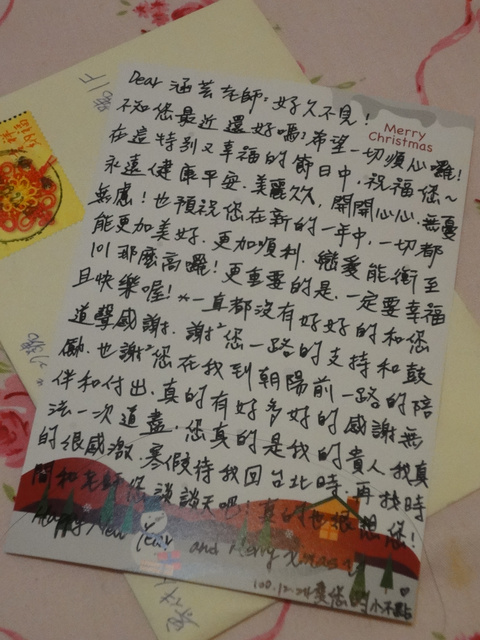 Dear 涵芸老師：好久不見！
Merry
Christmas
不知您最近還好嗎？希望一切順心喔！
在這特別又幸福的節日中，祝福您~
永遠健康平安．美麗久久，開開心心．無憂
無慮！也預祝您在新的一年中，一切都
能更加美好．更加順利．戀愛能衝至
101那麼高喔！更重要的是．一定要幸福
且快樂喔！*一直都沒有好好的和您
道聲感謝．謝²您一路的支持和鼓
勵．也謝²您在我找到朝陽前一路的陪
伴和付出．真的有好多好的感謝無
法一次道盡．您真的是我的貴人．我真
的很感激．寒假待我回台北時，再找時
間和老師您談談天吧！真的也很想您！
Happy New Year and Merry Xmas
100.12.24 愛您的小不點